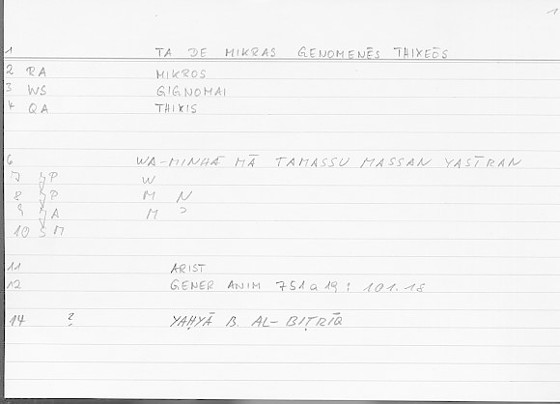 1
1 TA DE MIKRAS GENOMENĒS THIXEŌS
2 RA MIKROS
3 WS GIGNOMAI
4 QA THIXIS
6 WA-MINHĀ MĀ TAMASSU MASSAN YASĪRAN
7 P W
8 P M N
9 A M
10 M
11 ARIST
12 GENER ANIM 751a19 : 101.18
14 ? YAḤYĀ B. AL-BIṬRĪQ